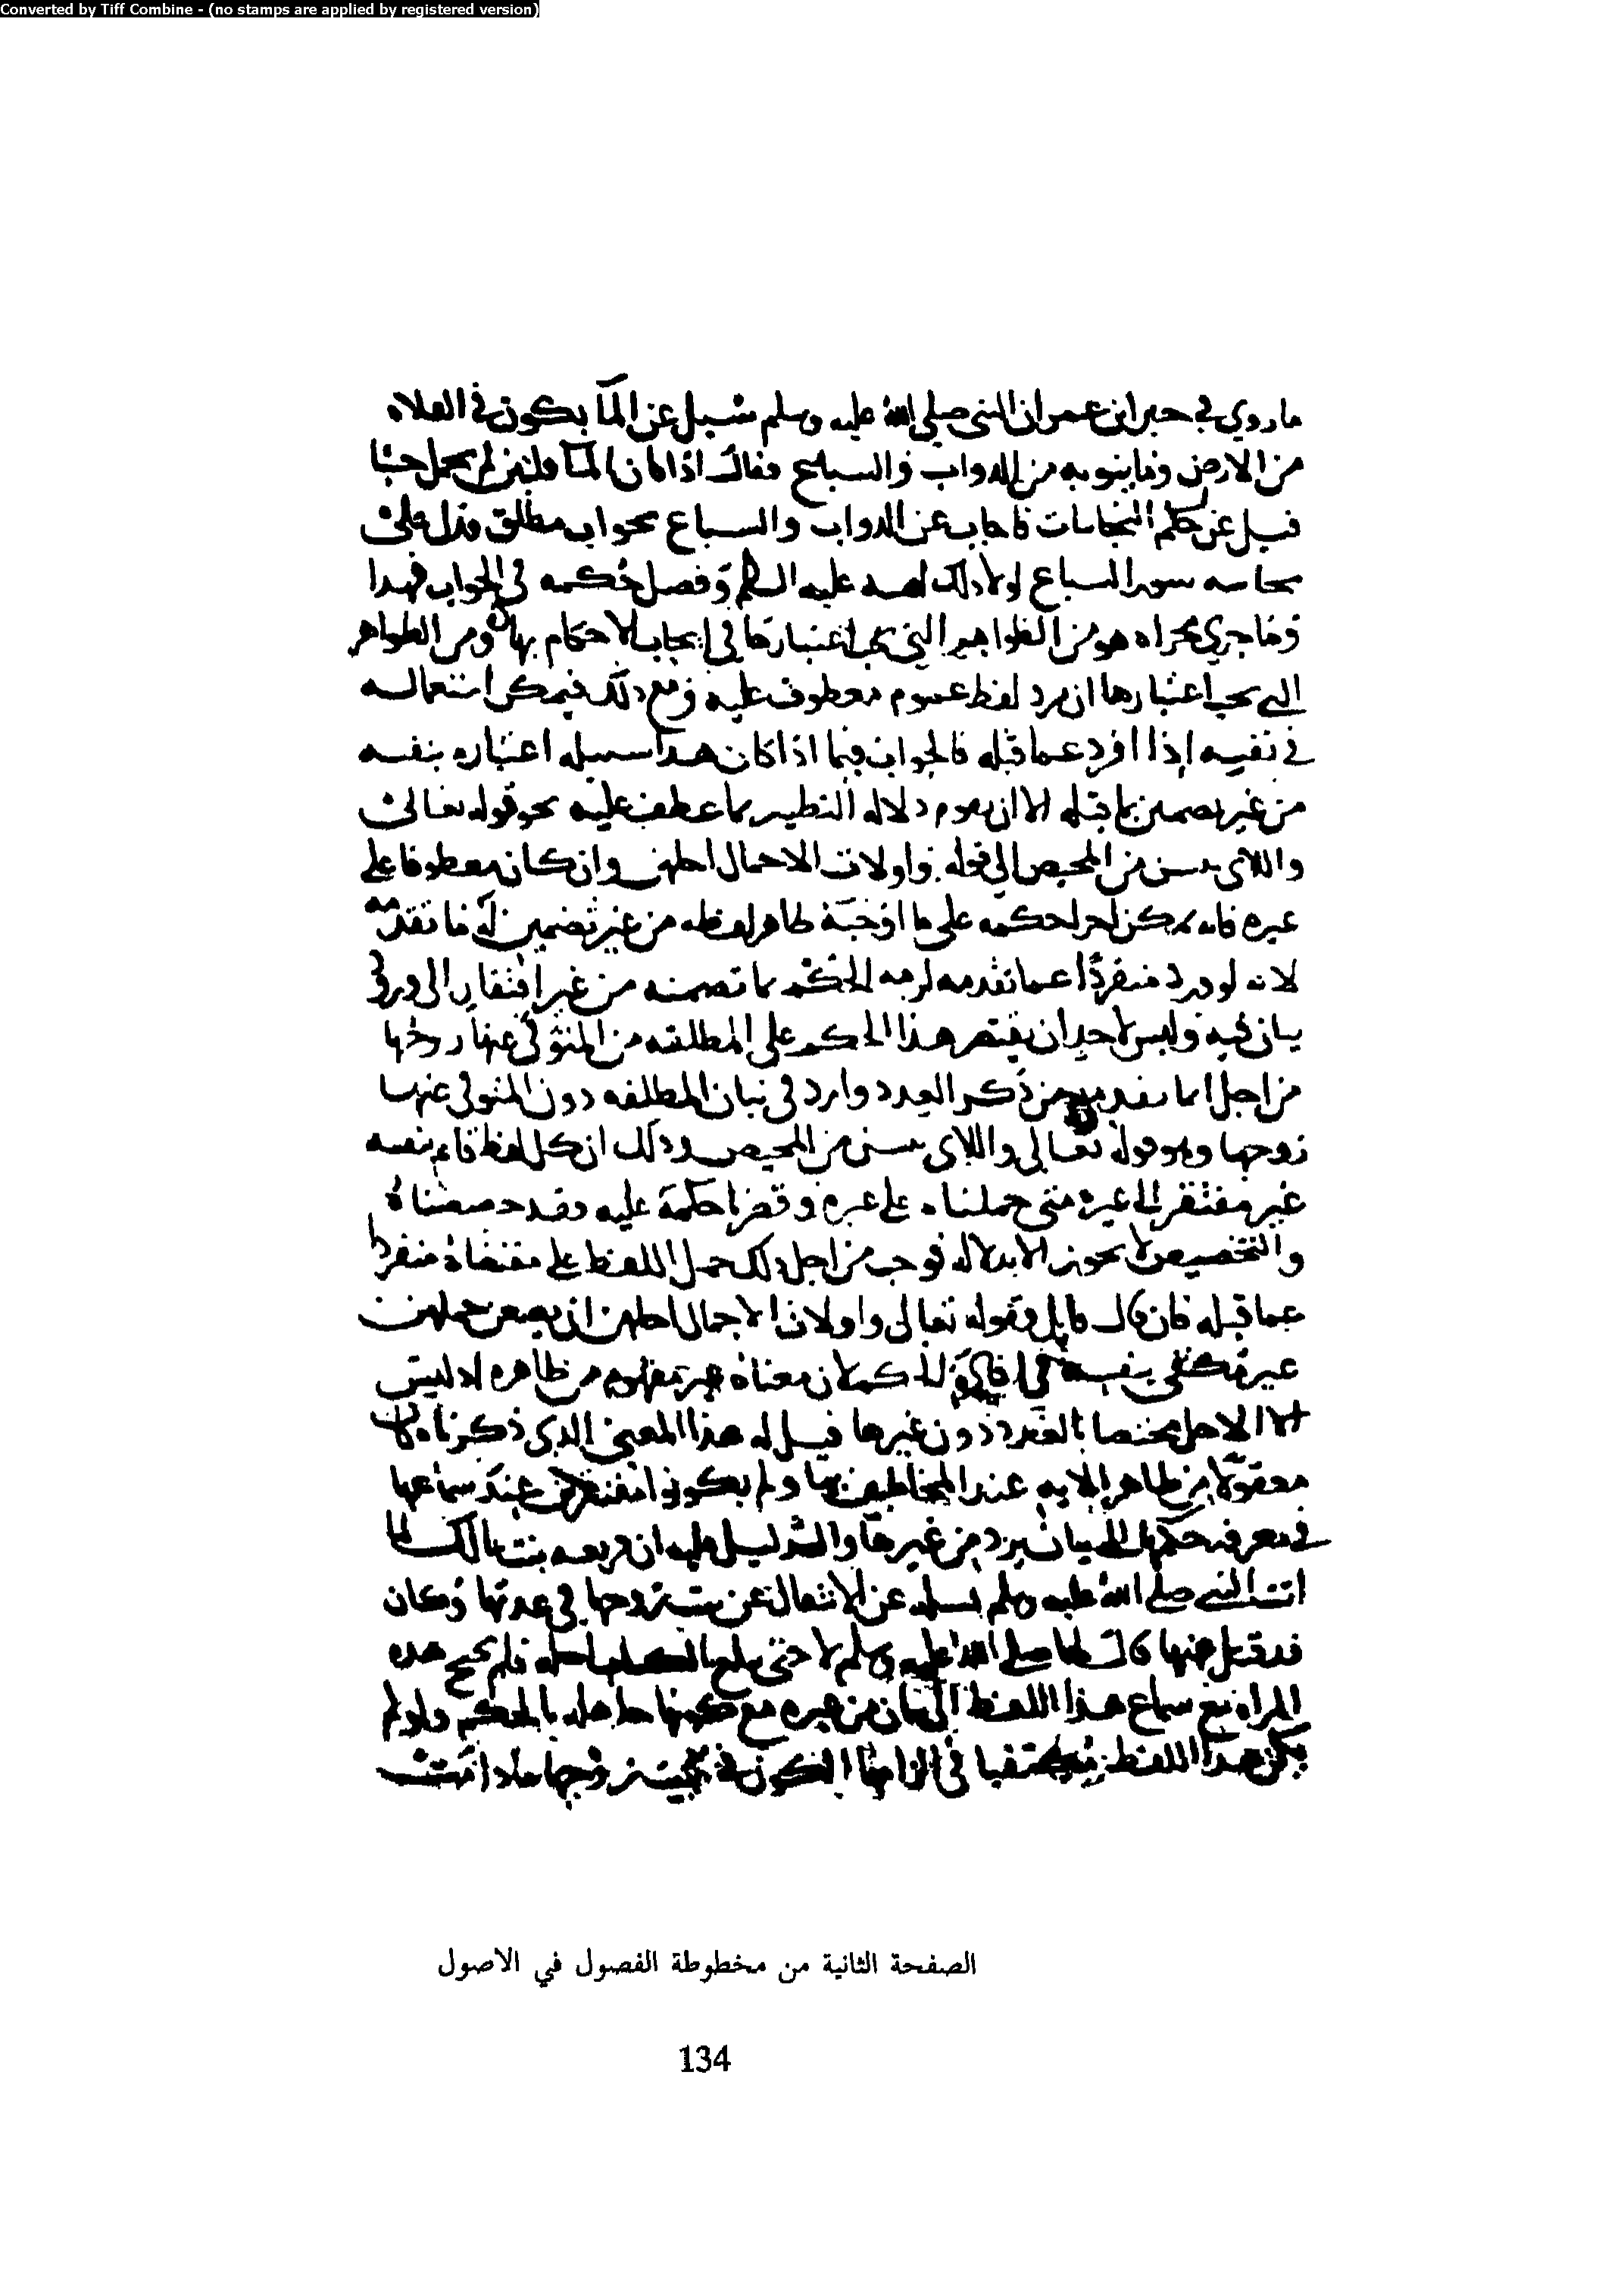 Converted by Tiff Combine - (no stamps are applied by registered version)
ما روي في خبر ابن عمر ان النبي صلى الله عليه وسلم سئل عن الماء يكون في الفلاه
من الارض وما ينوبه من الدواب والسباع فقال اذا كان الماء قلتين لم يحمل خبثا
فسئل عن حكم النجاسات فاجاب عن الدواب والسباع بجواب مطلق فدل على
نجاسه سور السباع لولا ذلك عليه السلم وفصل حكمه في الجواب فهذا
وما جرى مجراه هو من الظواهر التي يجب اعتبارها في ايجاب الاحكام بها ومن الظواهر
التي يجب اعتبارها ان يرد لفظ عموم معطوف عليه ومع ذلك فيمكن استعماله
في نفسه إذا افرد عما قبله فالجواب فيما اذا كان هذا سبيله اعتباره بنفسه
من غير تضمين بما قبله الا ان يقوم دلاله التضمين بما عطف عليه نحو قوله تعالى
واللاى يئسن من المحيض الى قوله واولات الاحمال اجلهن وان كان معطوفا على
غيره فانه يمكن اجرا حكمه على ما اوجبه ظاهر لفظه من غير تضمين له بما تقدمه
لانه لو ورد منفردًا عما تقدمه لزمه الحكم بما تضمنه من غير افتقار الى ورود
بيان فيه وليس لاحد ان يقتصر هذا الحكم على المطلقه دون المتوفى عنها زوجها
من اجل ان ما تقدم من ذكر العدد وارد في بيان المطلقه دون المتوفى عنها
زوجها وهو قوله تعالى واللاى يئسن من المحيض وذلك ان كل لفظ قائم بنفسه
غير مفتقر الى غيره متى حملناه على غيره وقصرنا حكمه عليه فقد خصصناه
والتخصيص لا يجوز الا بدلاله فوجب من اجل ذلك حمل اللفظ على مقتضاه منفردا
عما قبله فان قال قايل فقوله تعالى واولات الاحمال اجلهن ان يضعن حملهن
غير مكتفى بنفسه في الحكم لان معناه غير مفهوم من ظاهره اذ ليس
الاجل مختصا بالعدد دون غيرها قيل له هذا المعنى الذي ذكرناه كان
معقولا من ظاهر الايه عند المخاطبين بها ولم يكونوا مفتقرين عند سماعها
في معرفه حكمها الى بيان يرد من غيرها والدليل عليه ان فريعه بنت مالك لما
اتت النبي صلى الله عليه وسلم تسله عن الانتقال عن بيت زوجها في عدتها وكان
قد قتل عنها قال لها صلى الله عليه وسلم لا حتى يبلغ الكتاب اجله فلم تحتج هذه
المراه مع سماع هذا اللفظ الى بيان من غيره مع كونها جاهله بالحكم ولو لم
يكن هذا اللفظ مكتفيا في الزامها الكون في بيت زوجها
الصفحة الثانية من مخطوطة الفصول في الاصول
134